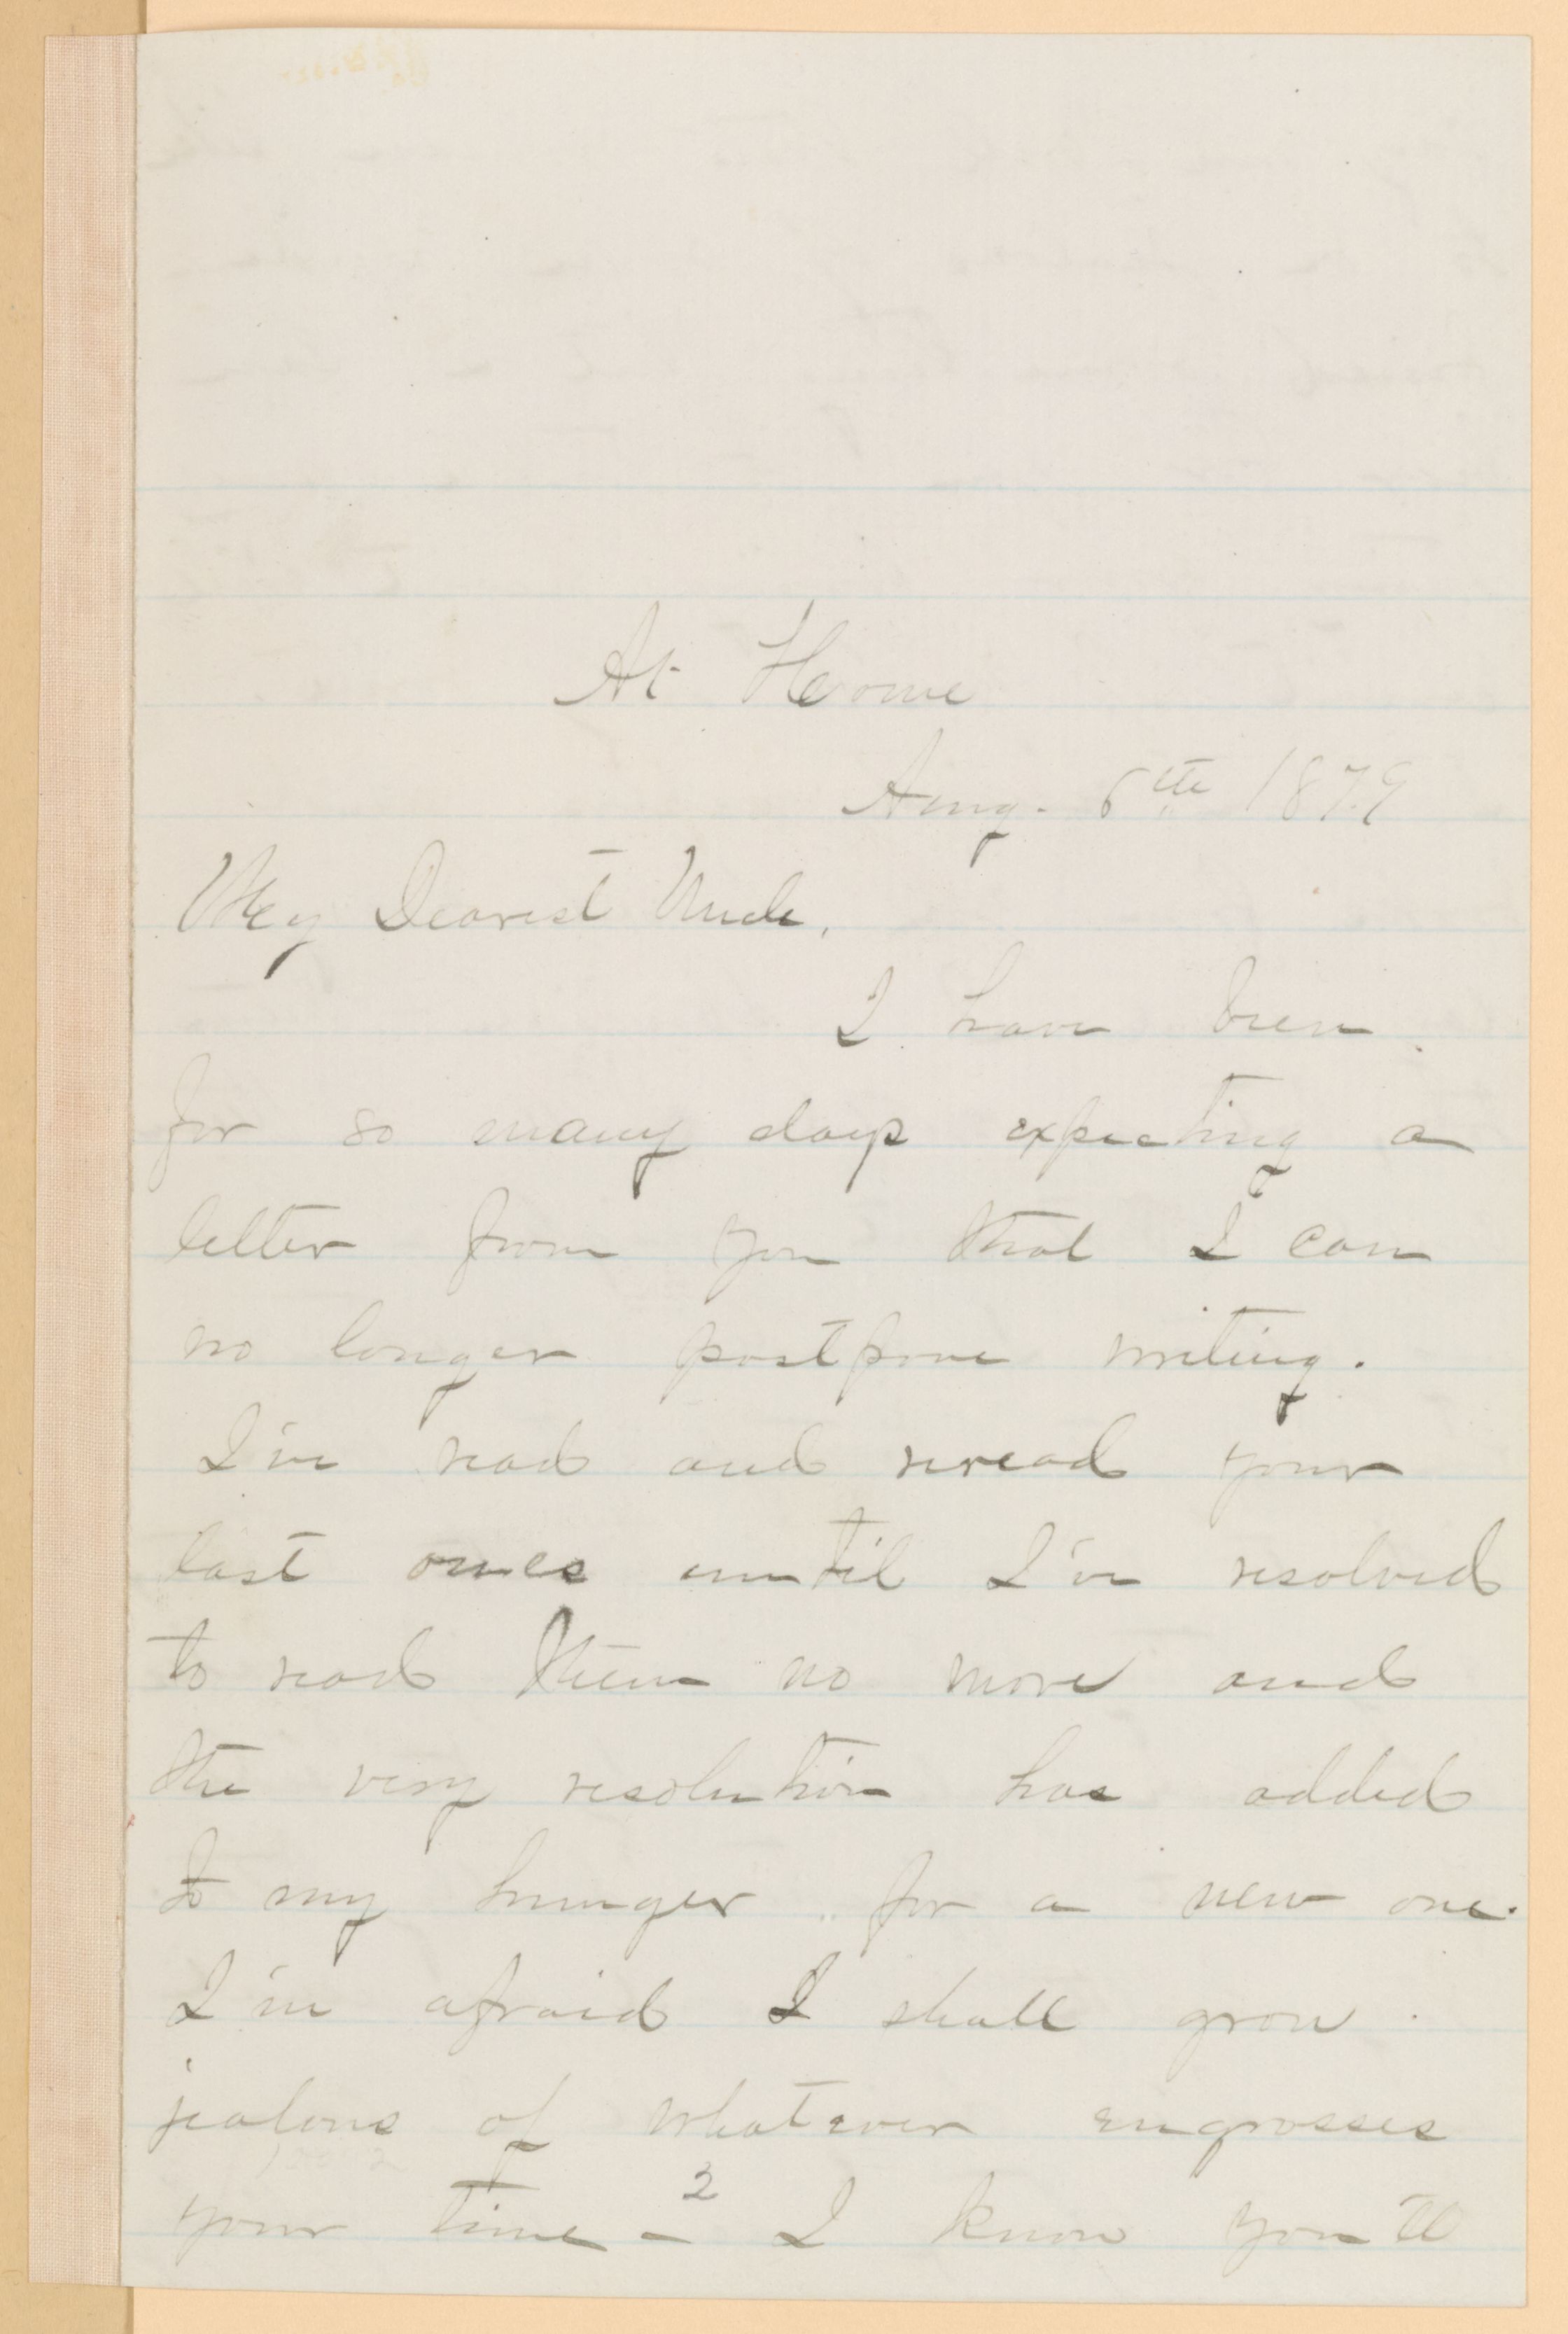 At Home
Aug. 6th 1879
My Dearest Uncle,
I have been
for so many days expecting a
letter from you that I can
no longer postpone writing.
I've read and reread your
last ones until I've resolved
to read them no more and
the very resolution has added
to my hunger for a new one.
I'm afraid I shall grow
jealous of whatever engrosses
your time – I know you'll
2